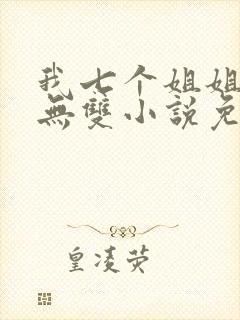 我七个姐姐
無雙小說免
皇凌荧